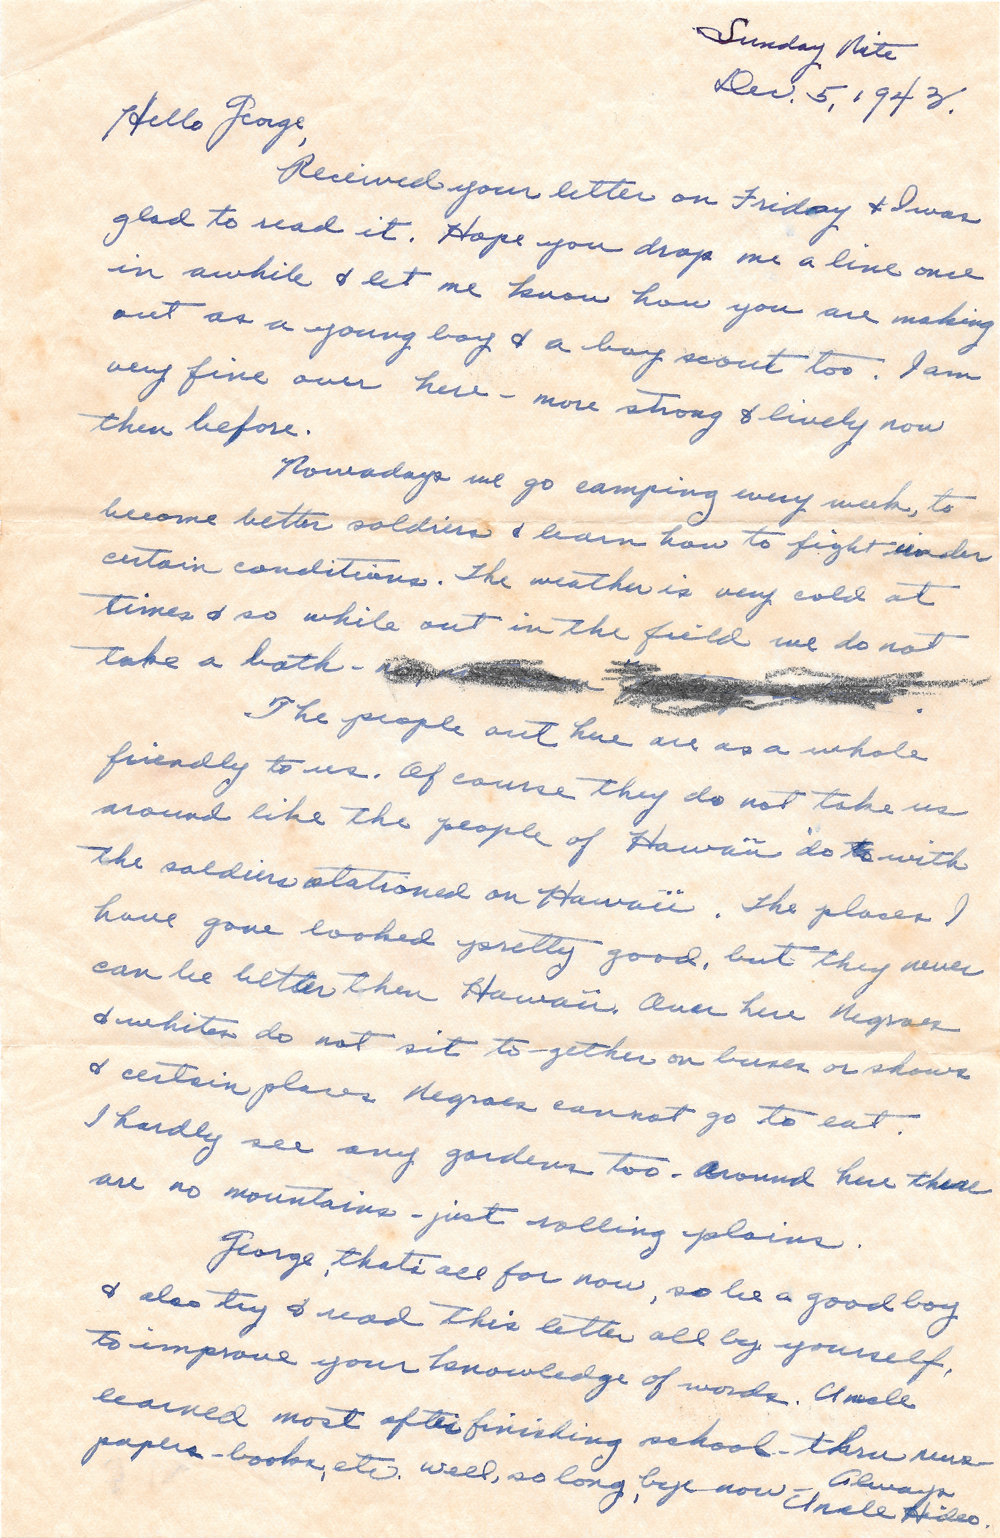 Sunday Nite
Dec. 5, 1943.
Hello George,
Received your letter on Friday & I was
glad to read it. Hope you drop me a line once
in awhile & let me know how you are making
out as a young boy & a boy scout too. I am
very fine over here - more strong & lively now
then before.
Nowadays we go camping every week, to
become better soldiers & learn how to fight under
certain conditions. The weather is very cold at
times & so while out in the field we do not
take a bath -
The people out here are as a whole
friendly to us. Of course they do not take us
around like the people of Hawaii do with
the soldiers stationed on Hawaii. The places I
have gone looked pretty good, but they never
can be better then Hawaii. Over here Negroes
& whites do not sit to-gether on buses or shows
& certain places Negroes cannot go to eat.
I hardly see any gardens too - Around here there
are no mountains - just rolling plains.
George, that's all for now, so be a good boy
& also try & read this letter all by yourself,
to improve your knowledge of words. Uncle
learned most after finishing school - thru news-
papers - books, etc. Well, so long, bye now -, Always
Uncle Hideo.